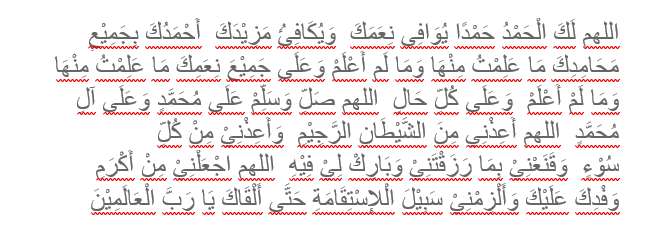 اللهم لَكَ الْحَمْدُ حَمْدًا يُوَافِي نِعَمَكَ وَيُكَافِئُ مَزِيْدَكَ أَحْمَدُكَ بِجَمِيْعِ
مَحَامِدِكَ مَا عَلِمْتُ مِنْهَا وَمَا لَم أَعْلَمْ وَعَلَى جَمِيْعَ نِعَمِكَ مَا عَلِمْتُ مِنْهَا
وَمَا لَمْ أَعْلَمْ وَعَلَى كُلّ حَالِ اللهم صَلّ وَسَلّمْ عَلَى مُحَمَّدٍ وَعَلَى آلِ
مُحَمَّدٍ اللهم أَعِذْنِي مِنَ الشَّيْطَانِ الرَّجِيْمِ وَأَعِذْنِيْ مِنْ كُلّ
سُوْءٍ وَقَنّعْنِيْ بِمَا رَزَقْتَنِيْ وَبَارِكْ لِيْ فِيْهِ اللهم اجْعَلْنِيْ مِنْ أَكْرَمِ
وَفْدِكَ عَلَيْكَ وَأَلْزِمْنِيْ سَبِيْلَ الْاِسْتِقَامَةِ حَتَّى أَلْقَاكَ يَا رَبَّ الْعَالَمِيْنَ